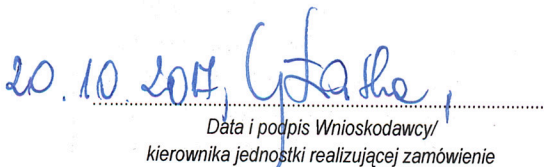 20.10.2017,
Data i podpis Wnioskodawcy/
kierownika jednostki realizującej zamówienie